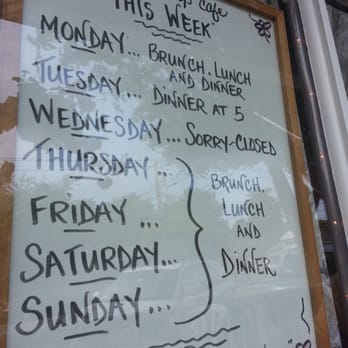 Cafe
THIS WEEK
MONDAY... BRUNCH, LUNCH
AND DINNER
TUESDAY... DINNER AT 5
WEDNESDAY... SORRY-CLOSED
THURSDAY...
FRIDAY...
SATURDAY...
SUNDAY...
BRUNCH,
LUNCH
AND
DINNER